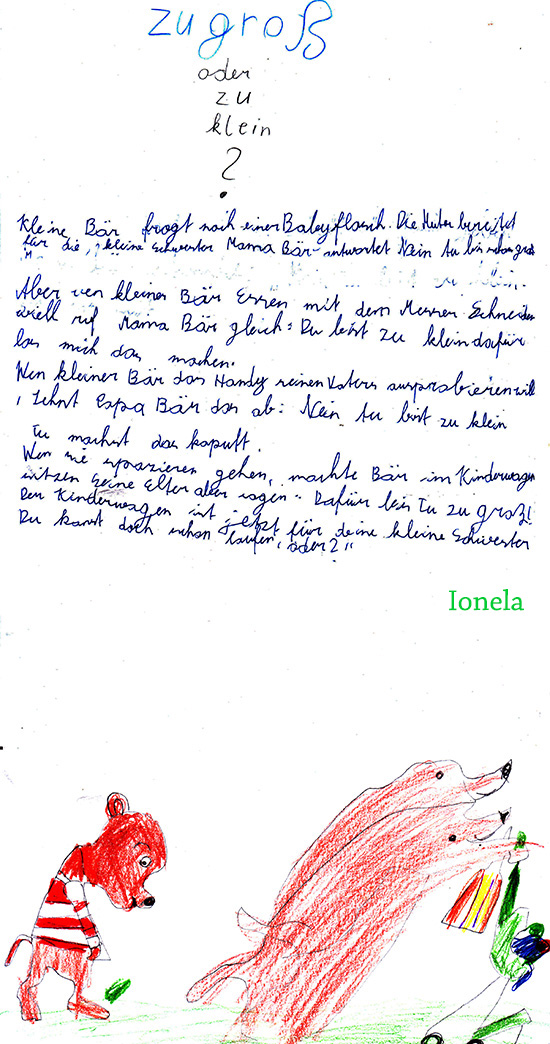 zu groß
oder
zu
klein
?
Kleine Bär fragt nach einer Babyflasch. Die Muter bereitet
für die kleine Schwester Mama Bär antwortet Nein tu bin schon groß
Aber wen kleiner Bär Essen mit dem Messer Schneiden
will ruf Mama Bär gleich: Du bist zu klein dafür
las mich das machen.
Wen kleiner Bär das Handy seinen Vaters ausprobieren will
, Lehnt Papa Bär das ab: Nein tu bist zu klein
Tu machst das kaputt.
Wen sie spazieren gehen, machte Bär im Kinderwagen
sitzen seine Elter aber sagen " Dafür bein Tu zu groß!
Den Kinderwagen ist jetzt für deine kleine Schwester
Du kanst doch schon laufen, oder?"
Ionela